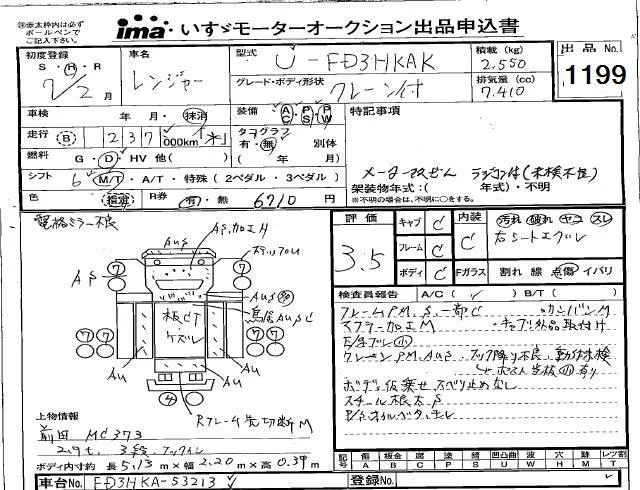 ㊟赤太枠内は必ず
ボールペンで
ご記入下さい。
ima いすゞモーターオークション出品申込書
初度登録
S・H・R
7/2月
車名
レンジャー
型式
U-FD3HKAK
グレード・ボディ形状
クレーン付
積載(kg)
2.550
排気量(cc)
7.410
出品No.
1199
車検 年・月・抹消
走行 B 237 000km
燃料 G・D・HV 他( )
シフト 6 M/T・A/T・特殊(2ペダル・3ペダル)
色 R券 有・無 6710円
装備 AC PS PW
タコグラフ
有・無 別体
( 年 月)
特記事項
ラジコン付(未検不良)
架装物年式:( 年式)・不明
※不明の場合は、不明に○をする。
電格ミラー不良
AS加工H
AUS
AS
板CT
ケズレ
AU
AU
4
Rフレーム先切断M
評価
3.5
キャブ C
フレーム C
ボディ C
内装 C
Fガラス
汚れ 破れ ヤコ スレ
右シートエグレ
割れ 線 点傷 イバリ
検査員報告 A/C( ✓ ) B/T( )
フレームPM.S.一部C
マフラー加工M ・キャブ外品取付け
クレーンPM.AUS フック降り不良、動作未検
ボディ仮乗せ スベリ止めなし
スチール根太S
上物情報
前田 MC373
2.9t. 3段 フックイン
ボディ内寸約 長5.13m×幅2.20m×高0.39m
記号
傷 A
板金 B
腐 C
塗 P
錆 S
凹 U
凸凹曲 W
穴 H
跡 M
付 T
レツ割
車台No. FD3HKA-53213
登録No.